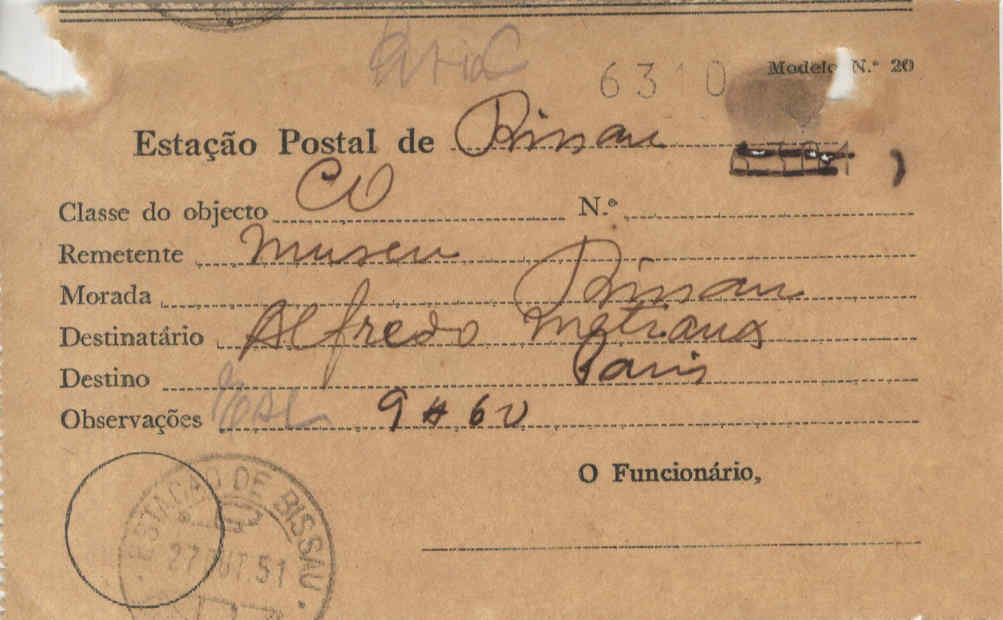 6310 Modelo N.º 20
Estação Postal de Bissau
Classe do objecto CO N.º
Remetente Museu
Morada Bissau
Destinatário Alfredo Metraux
Destino Paris
Observações 9#60
O Funcionário,
ESTAÇÃO DE BISSAU
27 OUT.51